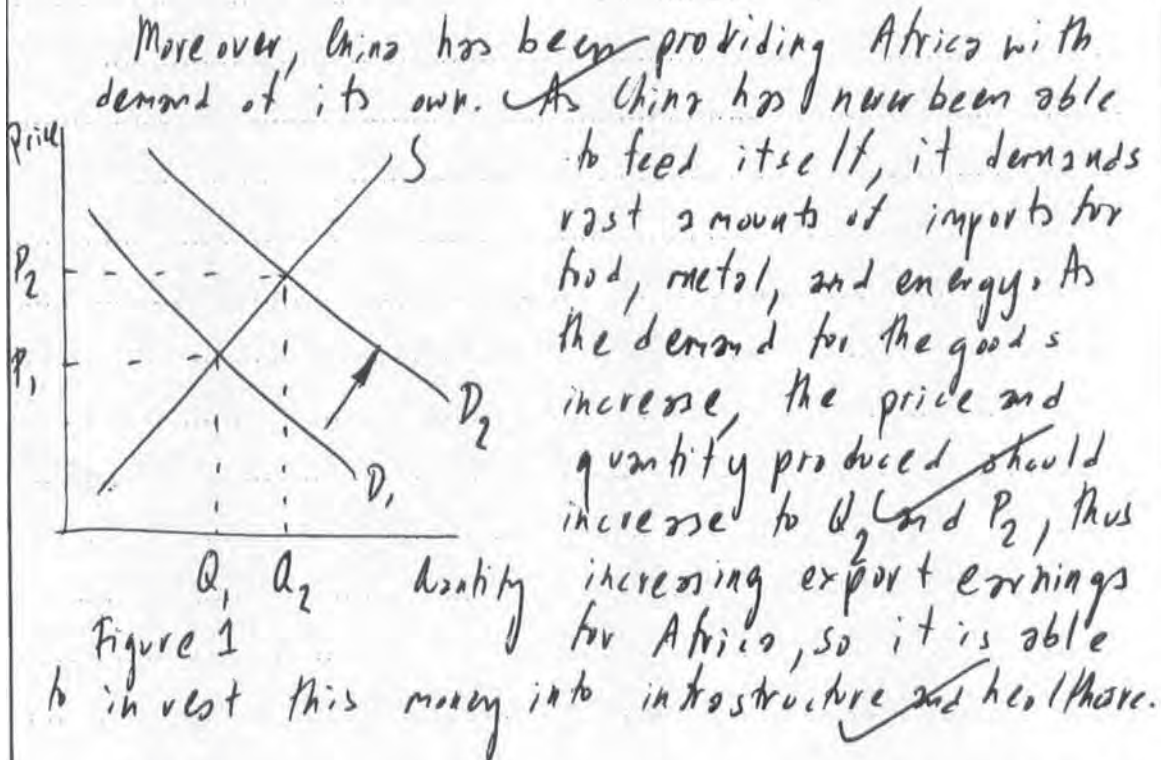 Moreover, China has been providing Africa with
demand of its own. As China has never been able
to feed itself, it demands
vast amounts of imports for
food, metal, and energy. As
the demand for the goods
increase, the price and
quantity produced should
increase to Q2 and P2, thus
increasing export earnings
for Africa, so it is able
to invest this money into infrastructure and healthcare.
Price
S
P2
P1
D2
D1
Q1 Q2 Quantity
Figure 1